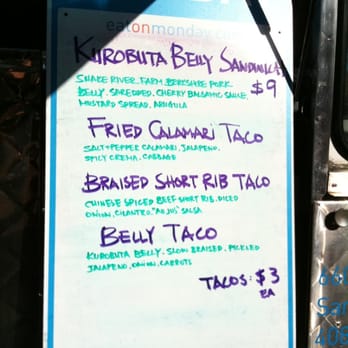 eatonmonday.c
KUROBUTA BELLY SANDWICH
SNAKE RIVER FARM BERKSHIRE PORK
$9
BELLY. SHREDDED. CHERRY BALSAMIC SAUCE.
MUSTARD SPREAD. ARUGULA
FRIED CALAMARI TACO
SALT+PEPPER CALAMARI. JALAPENO.
SPICY CREMA. CABBAGE
BRAISED SHORT RIB TACO
CHINESE SPICED BEEF SHORT RIB. DICED
ONION. CILANTRO. "AU JUS" SALSA
BELLY TACO
KUROBUTA BELLY. SLOW BRAISED. PICKLED
JALAPENO. ONION. CARROTS
TACOS: $3
EA
San
408